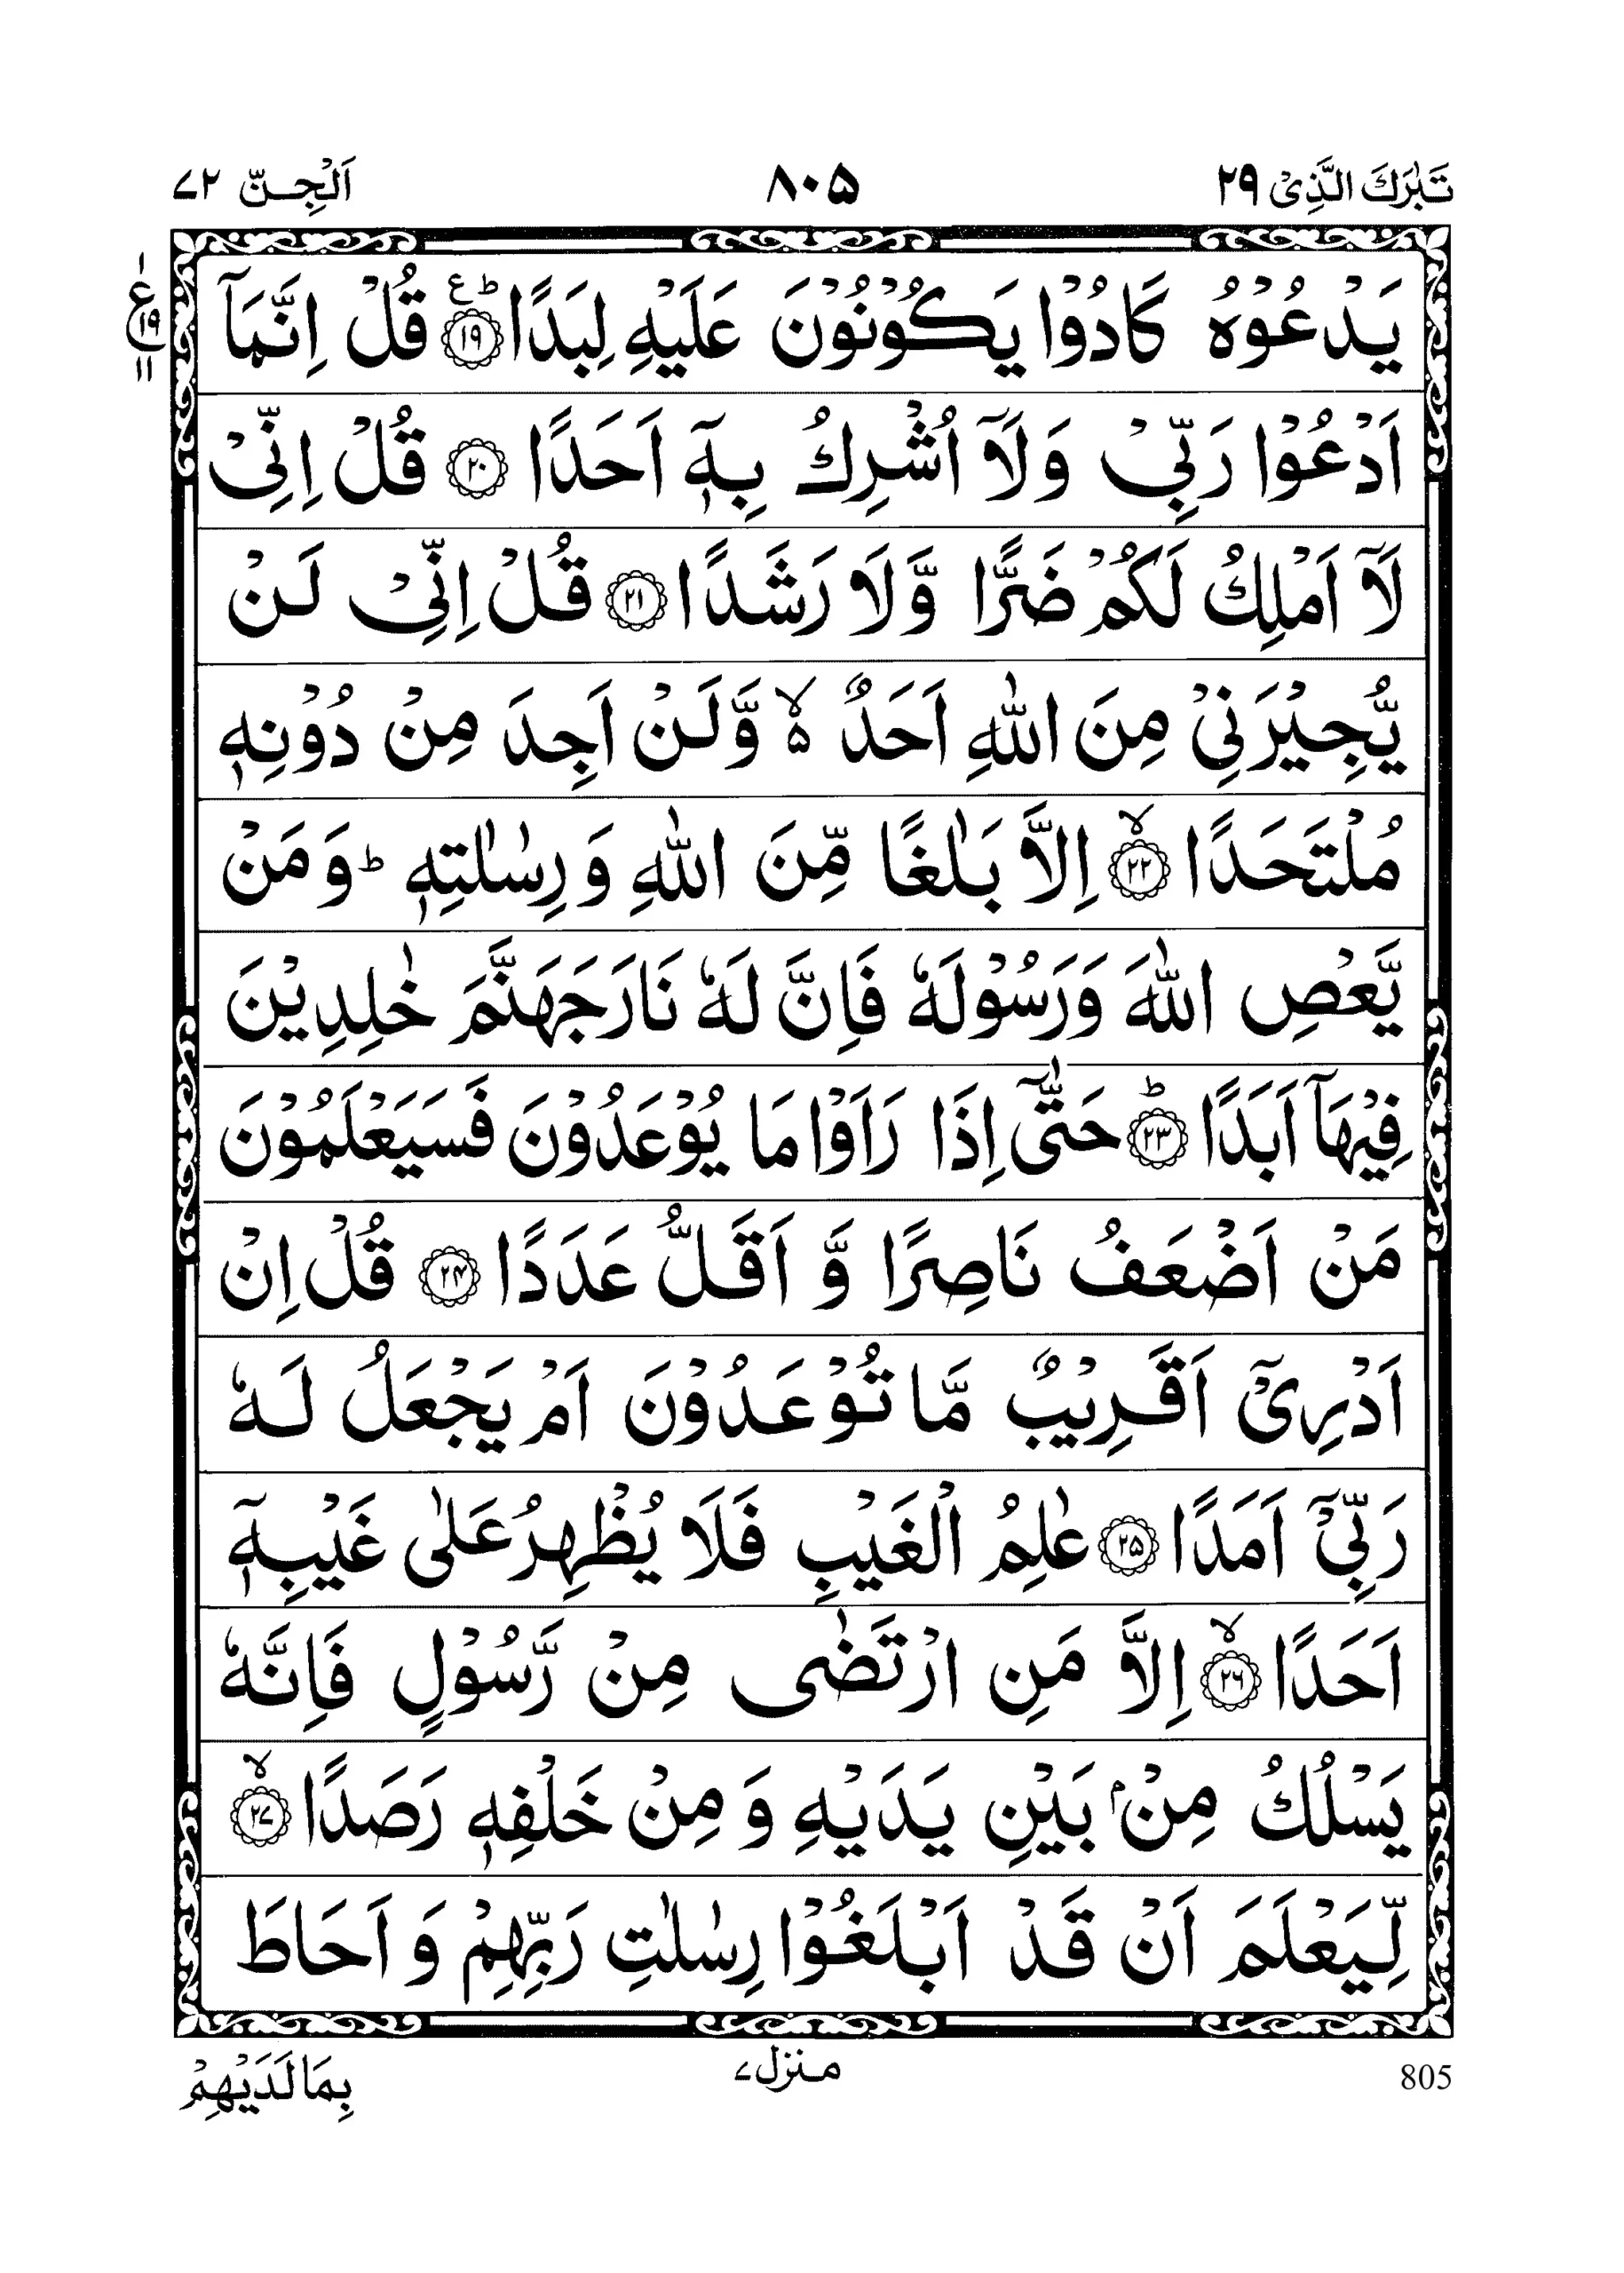 تَبٰرَكَ الَّذِیْ ۲۹
۸۰۵
اَلْجِنّ ۷۲
۱
ع
۱۹
۱۱
یَدْعُوْهُ كَادُوْا یَكُوْنُوْنَ عَلَیْهِ لِبَدًا ؕ۠ ۝۱۹ قُلْ اِنَّمَاۤ
اَدْعُوْا رَبِّیْ وَلَاۤ اُشْرِكُ بِهٖۤ اَحَدًا ۝۲۰ قُلْ اِنِّیْ
لَاۤ اَمْلِكُ لَكُمْ ضَرًّا وَّلَا رَشَدًا ۝۲۱ قُلْ اِنِّیْ لَنْ
یُّجِیْرَنِیْ مِنَ اللّٰهِ اَحَدٌ ۙ۬ وَّلَنْ اَجِدَ مِنْ دُوْنِهٖ
مُلْتَحَدًا ۙ ۝۲۲ اِلَّا بَلٰغًا مِّنَ اللّٰهِ وَرِسٰلٰتِهٖ ؕ وَمَنْ
یَّعْصِ اللّٰهَ وَرَسُوْلَهٗ فَاِنَّ لَهٗ نَارَ جَهَنَّمَ خٰلِدِیْنَ
فِیْهَاۤ اَبَدًا ؕ ۝۲۳ حَتّٰۤی اِذَا رَاَوْا مَا یُوْعَدُوْنَ فَسَیَعْلَمُوْنَ
مَنْ اَضْعَفُ نَاصِرًا وَّ اَقَلُّ عَدَدًا ۝۲۴ قُلْ اِنْ
اَدْرِیْۤ اَقَرِیْبٌ مَّا تُوْعَدُوْنَ اَمْ یَجْعَلُ لَهٗ
رَبِّیْۤ اَمَدًا ۝۲۵ عٰلِمُ الْغَیْبِ فَلَا یُظْهِرُ عَلٰی غَیْبِهٖۤ
اَحَدًا ۙ ۝۲۶ اِلَّا مَنِ ارْتَضٰی مِنْ رَّسُوْلٍ فَاِنَّهٗ
یَسْلُكُ مِنْۢ بَیْنِ یَدَیْهِ وَمِنْ خَلْفِهٖ رَصَدًا ۙ ۝۲۷
لِّیَعْلَمَ اَنْ قَدْ اَبْلَغُوْا رِسٰلٰتِ رَبِّهِمْ وَ اَحَاطَ
بِمَا لَدَیْهِمْ
منزل ۷
805